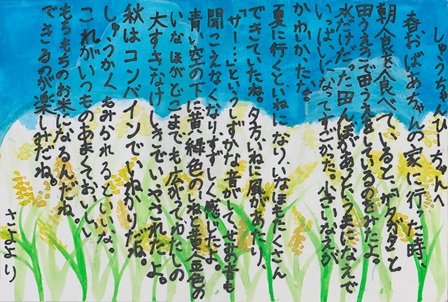 しょうかんひーちゃんへ
春おばあちゃんの家に行った時、
朝食を食べていると、ガタガタと
田うえきで田うえをしているのが見えたよ。
水だけだった田んぼがあっというまになえで
いっぱいになってすごかった。小さいなえが
かわいかったな。
夏に行くといねになり、いなほもたくさん
できていたね。夕方いねに風があたり、
「サー…」というしずかな音がして、せみの声も
聞こえなくなりすずしく感じたよ。
青い空の下に黄緑色のいなと黄金色の
いなほがどこまでも広がってわたしの
大すきなけしきでいやされたよ。
秋はコンバインでいねかりだね。
しゅうかく、よみかれるといいな。
これがいつものあまくておいしい
もちもちのお米になるんだね。
できるのが楽しみだね。
さよより